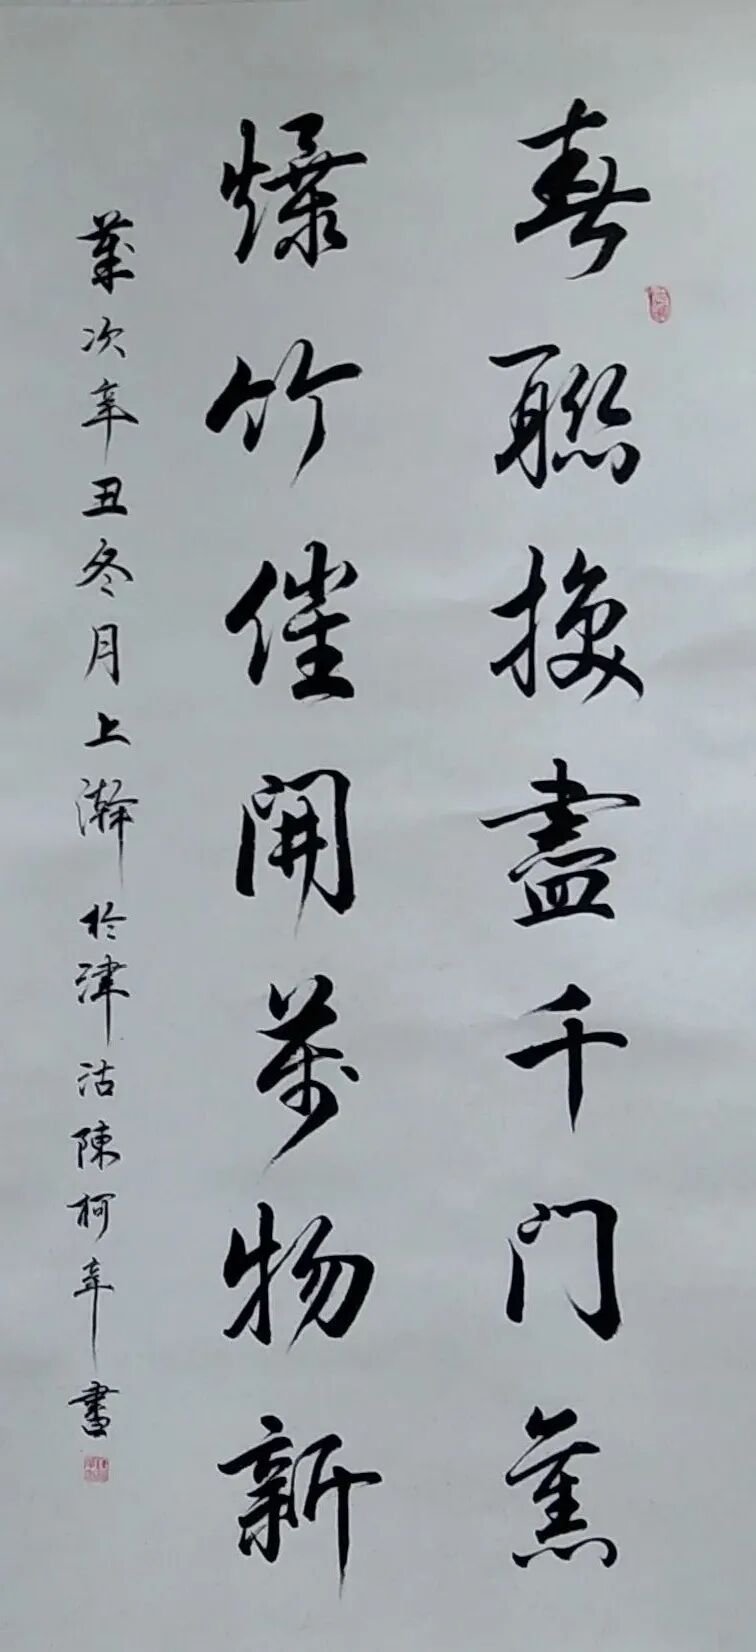 春聯換盡千门舊
爆竹催開萬物新
歲次辛丑冬月上澣於津沽陳柯辛書